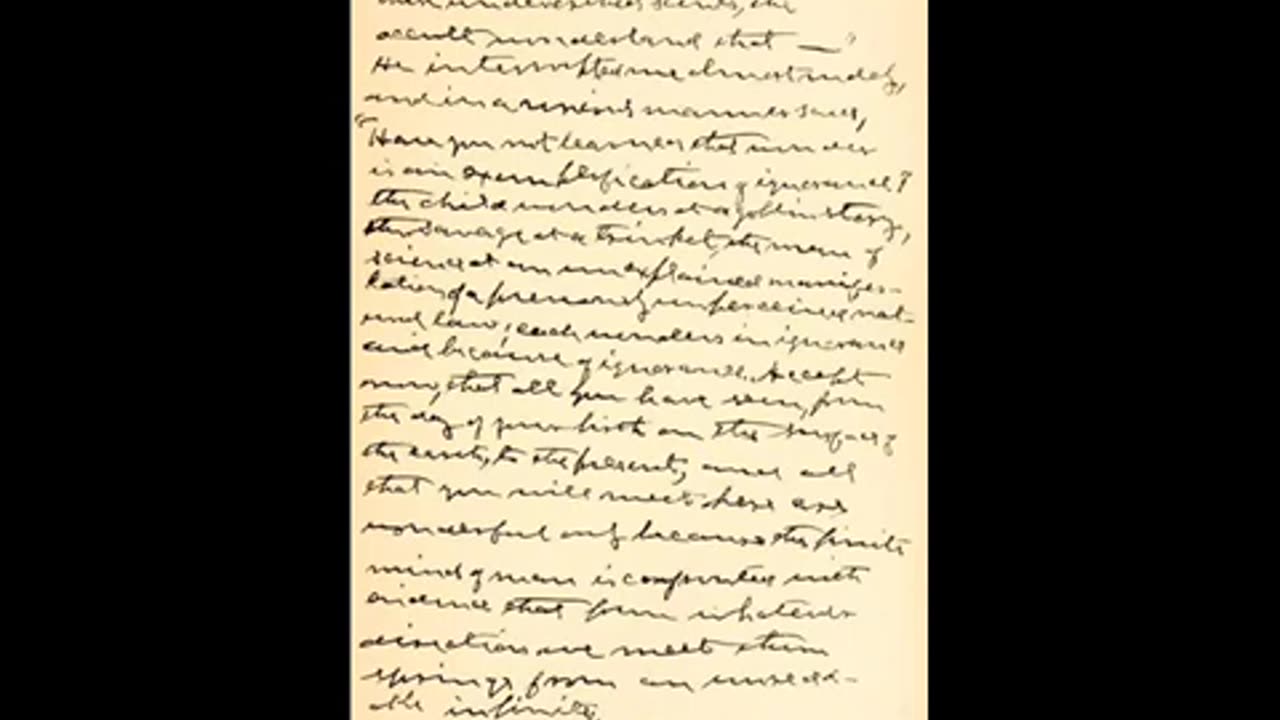 occult wonderland that —"
He interrupted me almost rudely,
and in a serious manner said,
"Have you not learned that wonder
is an exemplification of ignorance?
The child wonders at a goblin story,
the savage at a trinket, the man of
science at an unexplained manifes-
tation of a previously unperceived nat-
ural law; each wonders in ignorance
and because of ignorance. Accept
now, that all you have seen, from
the day of your birth on the surface of
the earth, to the present, and all
that you will meet here are
wonderful only because the finite
mind of man is confronted with
evidence that from whatever
direction we meet them
springs from an unread-
able infinite